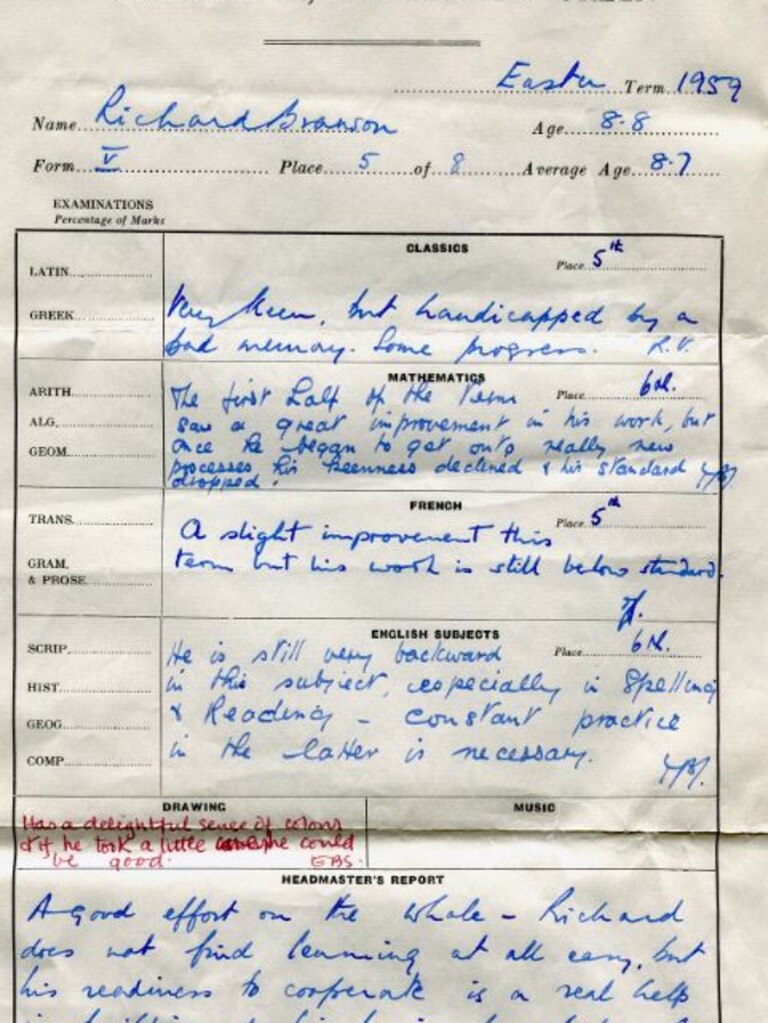 Easter Term 1959
Name Richard Branson Age 8.8
Form V Place 5 of 8 Average Age 8.7
EXAMINATIONS
Percentage of Marks
CLASSICS
Place 5th
LATIN
GREEK
Very keen, but handicapped by a
bad memory. Some progress. R.V.
MATHEMATICS
Place 6th.
ARITH
ALG.
GEOM.
The first half of the term
saw a great improvement in his work, but
once he began to get onto really new
processes his keenness declined & his standard
dropped.
FRENCH
Place 5th
TRANS.
GRAM.
& PROSE
A slight improvement this
term but his work is still below standard.
ENGLISH SUBJECTS
Place 6th.
SCRIP.
HIST.
GEOG
COMP
He is still very backward
in this subject, especially in Spelling
& Reading – constant practice
in the latter is necessary.
DRAWING
Has a delightful sense of colour
& if he took a little he could
be good. EBS.
MUSIC
HEADMASTER'S REPORT
A good effort on the whole – Richard
does not find learning at all easy, but
his readiness to cooperate is a real help